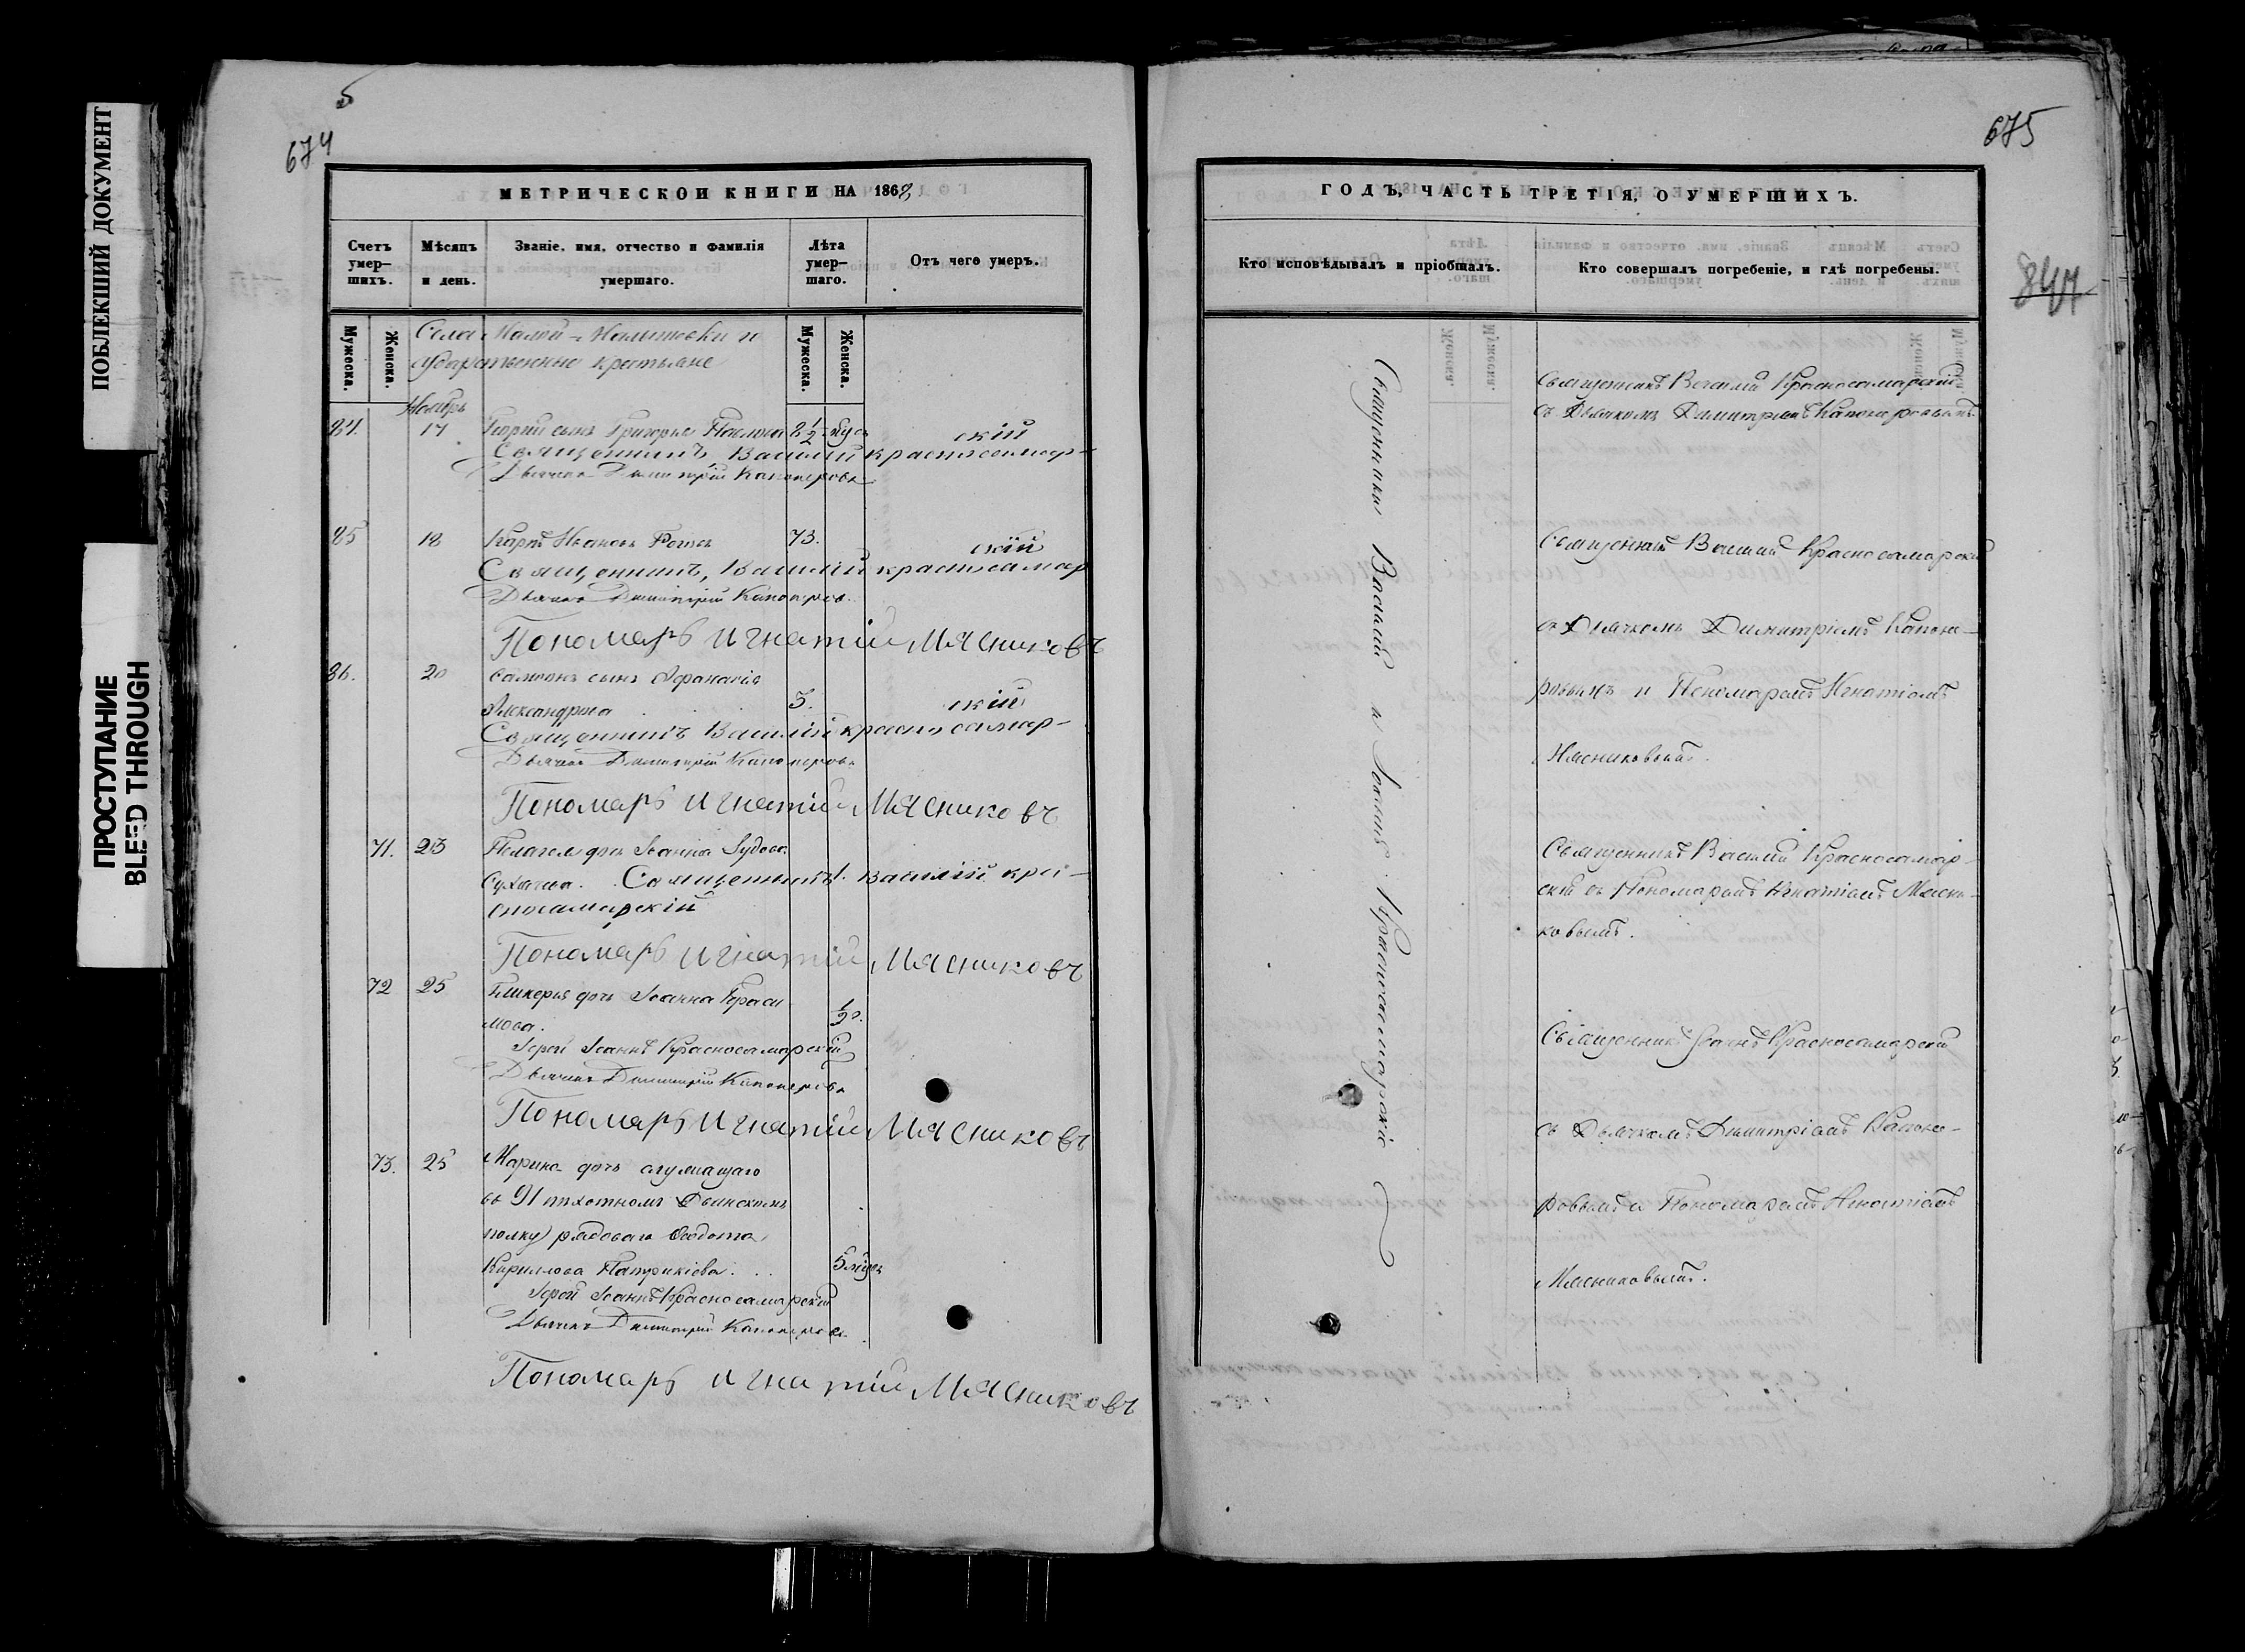 ПОБЛЕКШИЙ ДОКУМЕНТ
ПРОСТУПАНИЕ
BLEED THROUGH
5
674
МЕТРИЧЕСКОИ КНИГИ НА 1868
Счетъ умер-шихъ.
Мѣсяцъ и день.
Званіе, имя, отчество и фамилія умершаго.
Лѣта умер-шаго.
Отъ чего умеръ.
Мужеска.
Женска.
Мужеска.
Женска.
Села Малой-Малышевки го
сударственные крестьяне
Ноябрь
84. 17 Георгій сынъ Григорья Павлова 2 1/2
Священникъ Василій красносамар-
скій
Дьячекъ Димитрій Канонеровъ
85 18 Карпъ Ивановъ 73.
Священникъ, Василій красносамар
скій
Дьячекъ Димитрій Канонеровъ
Пономарь Игнатій Мясниковъ
86. 20 Самсонъ сынъ Афанасія
Александрова 3.
Священникъ Василій красносамар-
скій
Дьячекъ Димитрій Канонеровъ
Пономарь Игнатій Мясниковъ
71. 23 Пелагея дочь Іоанна
Священникъ Василій кра-
сносамарскій
Пономарь Игнатій Мясниковъ
72 25 Гликерія дочь Іоанна Гераси
мова. 1/2 г.
Іерей Іоаннъ Красносамарскій
Дьячекъ Димитрій Канонеровъ
Пономарь Игнатій Мясниковъ
73. 25 Марина дочь служащаго
въ 91 пѣхотномъ Двинскомъ
полку рядоваго Ѳедота
Кириллова Патрикіева. 5 мѣсяц
Іерей Іоаннъ Красносамарскій
Дьячекъ Димитрій Канонеровъ
Пономарь Игнатій Мясниковъ
675
847
ГОДЪ, ЧАСТЬ ТРЕТІЯ, О УМЕРШИХЪ.
Кто исповѣдывалъ и пріобщалъ.
Кто совершалъ погребеніе, и гдѣ погребены.
Священники Василій и Іоаннъ Красносамарскіе
Священникъ Василій Красносамарскій
съ Дьячкомъ Димитріемъ Канонеровымъ
Священникъ Василій Красносамарскій
съ Дьячкомъ Димитріемъ Каноне-
ровымъ и Пономаремъ Игнатіемъ
Мясниковымъ.
Священникъ Василій Красносамар-
скій съ Пономаремъ Игнатіемъ Мясни-
ковымъ.
Священникъ Іоаннъ Красносамарскій
съ Дьячкомъ Димитріемъ Каноне-
ровымъ и Пономаремъ Игнатіемъ
Мясниковымъ.